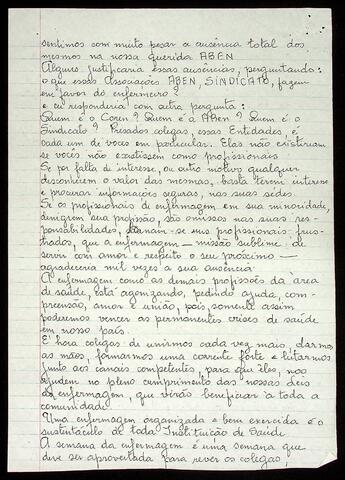 sentimos com muito pesar a ausência total dos
mesmos na nossa querida ABEN
Alguns justificaria essas ausências, perguntando:
o que essas Associações ABEN, SINDICATO, fazem
em favor do enfermeiro?
e eu responderia com outra pergunta:
Quem é o Coren? Quem é a ABen? Quem é o
Sindicato? Prezados colegas, essas Entidades, é
cada um de voces em particular. Elas não existiriam
se vocês não existissem como profissionais
Se por falta de interesse, ou outro motivo qualquer
desconhecem o valor das mesmas, basta terem interesse
e procurar informações seguras, nas suas sédes.
Se os profissionais de enfermagem em sua minoridade,
denigrem sua profissão, são omissos nas suas res-
ponsabilidades, tornam-se uns profissionais frus-
trados, que a enfermagem - missão sublime de
servir com amor e respeito o seu próximo -
agradeceria mil vezes a sua ausência
A enfermagem como as demais profissões da área
de saúde, está agonizando, pedindo ajuda, com-
preensão, amor e união, pois, somente assim
poderemos vencer as permanentes crises de saúde
em nosso país.
É hora colegas de unirmos cada vez mais, darmos
as mãos, formarmos uma corrente forte e lutarmos
junto aos canais competentes, para que eles, nos
ajudem no pleno cumprimento das nossas
da enfermagem, que virão beneficiar a toda a
comunidade
Uma enfermagem organizada e bem exercida é o
sustentáculo de toda Instituição de Saúde
A semana da enfermagem é uma semana que
deve ser aproveitada para rever os colegas,